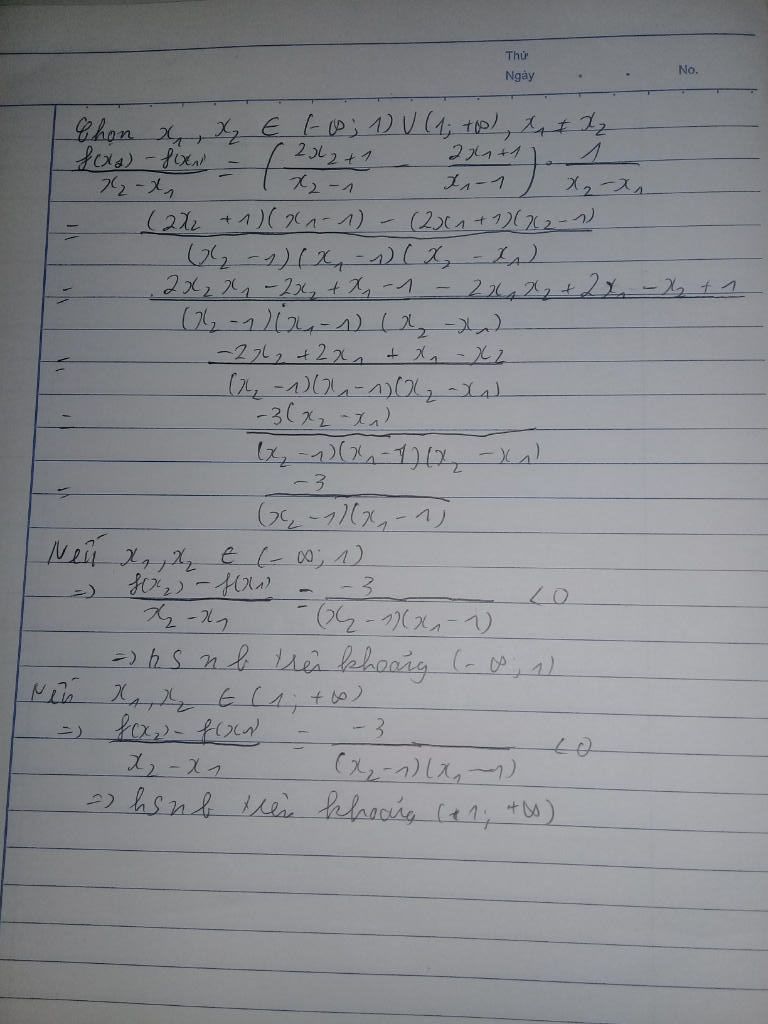 Thứ
Ngày . . No.
Chọn x₁, x₂ ∈ (-∞; 1) ∪ (1; +∞), x₁ ≠ x₂
(f(x₂) - f(x₁))/(x₂ - x₁) = ((2x₂ + 1)/(x₂ - 1) - (2x₁ + 1)/(x₁ - 1)) · 1/(x₂ - x₁)
= ((2x₂ + 1)(x₁ - 1) - (2x₁ + 1)(x₂ - 1))/((x₂ - 1)(x₁ - 1)(x₂ - x₁))
= (2x₂x₁ - 2x₂ + x₁ - 1 - 2x₁x₂ + 2x₁ - x₂ + 1)/((x₂ - 1)(x₁ - 1)(x₂ - x₁))
= (-2x₂ + 2x₁ + x₁ - x₂)/((x₂ - 1)(x₁ - 1)(x₂ - x₁))
= (-3(x₂ - x₁))/((x₂ - 1)(x₁ - 1)(x₂ - x₁))
= (-3)/((x₂ - 1)(x₁ - 1))
Nếu x₁, x₂ ∈ (-∞; 1)
=> (f(x₂) - f(x₁))/(x₂ - x₁) = (-3)/((x₂ - 1)(x₁ - 1)) < 0
=> hsnb trên khoảng (-∞; 1)
Nếu x₁, x₂ ∈ (1; +∞)
=> (f(x₂) - f(x₁))/(x₂ - x₁) = (-3)/((x₂ - 1)(x₁ - 1)) < 0
=> hsnb trên khoảng (+1; +∞)